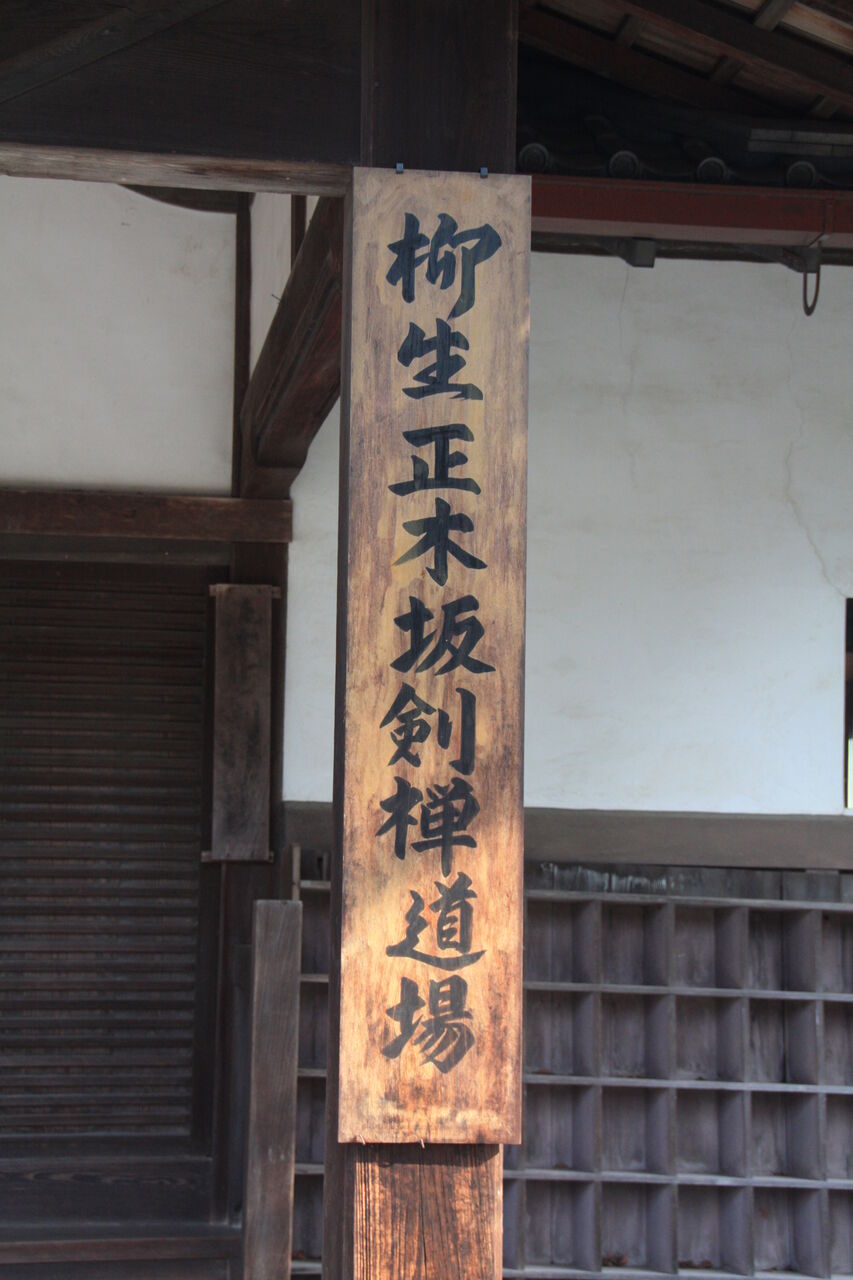 柳生正木坂剣禅道場